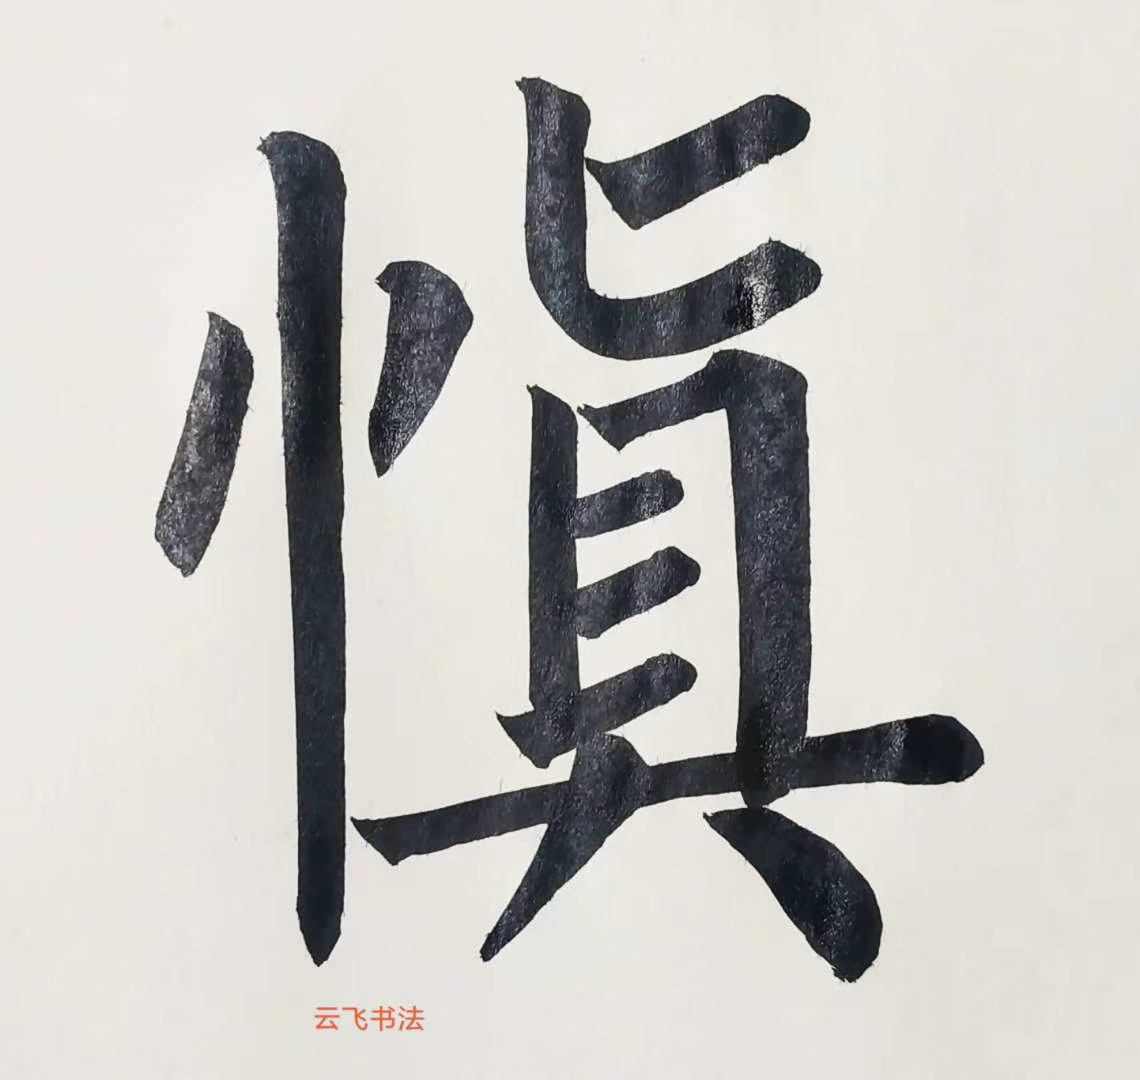 慎
云飞书法